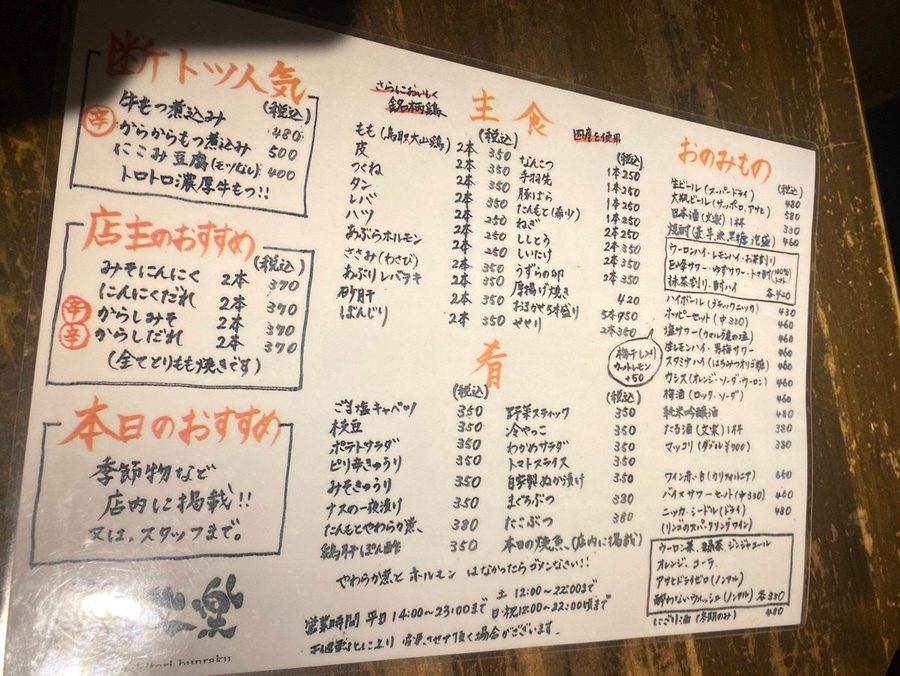 断トツ人気
(税込)
牛もつ煮込み 480
辛 からからもつ煮込み 500
にこみ豆腐(モツなし) 400
トロトロ濃厚牛もつ!!
店主のおすすめ
(税込)
みそにんにく 2本 370
にんにくだれ 2本 370
辛 からしみそ 2本 370
辛 からしだれ 2本 370
(全てとりもも焼きです)
本日のおすすめ
季節物など
店内に掲載!!
又は、スタッフまで。
さらにおいしく
銘柄鶏
主食
国産を使用
(税込)
もも(鳥取大山鶏) 2本 350
皮 2本 350
つくね 2本 350
タン 2本 350
レバ 2本 250
ハツ 2本 250
あぶらホルモン 2本 350
ささみ(わさび) 2本 350
あぶりレバテキ 2本 350
砂肝
ぼんじり 2本 350
(税込)
なんこつ 1本 250
手羽先 1本 250
豚ばら 1本 250
たんもと(希少) 1本 250
ねぎ 2本 250
ししとう 2本 350
しいたけ 2本 350
うずらの卵 2本 350
厚揚げ焼き 420
おまかせ5本盛り 5本 950
せせり 2本 350
肴
(税込)
ごま塩キャベツ 350
枝豆 350
ポテトサラダ 350
ピリ辛きゅうり 350
みそきゅうり 350
ナスの一夜漬け 350
たんもとやわらか煮、 380
鶏肝ぽん酢 350
(税込)
野菜スティック 350
冷やっこ 350
わかめサラダ 350
トマトスライス 350
自家製ぬか漬け 350
まぐろぶつ 380
たこぶつ 380
本日の焼魚、(店内に掲載)
やわらか煮と ホルモン はなかったらゴメンなさい!!
営業時間 平日 14:00~23:00まで
土 12:00~22:00まで
日・祝 12:00~22:00頃まで
変更させて頂く場合がございます.
おのみもの
(税込)
生ビール(スーパードライ) 480
大瓶ビール(サッポロ、アサヒ) 580
日本酒(文楽)1杯 330
焼酎(麦、芋、米、黒糖、泡盛) 460
ウーロンハイ・レモンハイ・お茶割り
巨峰サワー・ゆずサワー・トマト酎(100%トマト)
抹茶割り・酎ハイ 各420
ハイボール(ブラックニッカ) 430
ホッピーセット(中330) 460
塩サワー 460
梅干し入り
カットレモン
+50
生レモンハイ・男梅サワー 460
スタミナハイ(はちみつオリゴ糖) 460
カシス(オレンジ・ソーダ・ウーロン) 460
梅酒(ロック・ソーダ) 460
純米吟醸酒 480
たる酒(文楽)1杯 380
マッコリ(ダブル¥700) 380
ワイン赤・白(カリフォルニア)
バイスサワーセット(中330) 460
ニッカ・シードル(ドライ) 480
(リンゴのスパークリングワイン)
ウーロン茶、緑茶、ジンジャエール
オレンジ、コーラ、
アサヒドライゼロ(ノンアル)
酔わないウメッシュ(ノンアル) 各330
にごり酒(冬期のみ) 480
楽
bunraku